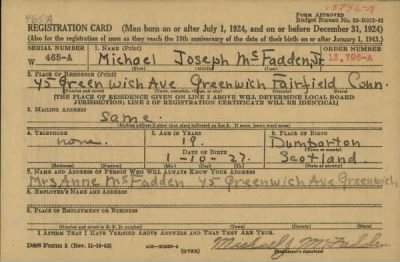 465A
13796-A
FORM APPROVED
Budget Bureau No. 33-R012-42
REGISTRATION CARD (Men born on or after July 1, 1924, and on or before December 31, 1924)
(Also for the registration of men as they reach the 18th anniversary of the date of their birth on or after January 1, 1943.)
SERIAL NUMBER
1. NAME (Print)
ORDER NUMBER
W 465-A
Michael Joseph McFadden, Jr.
13,796-A
(First) (Middle) (Last)
2. PLACE OF RESIDENCE (Print)
45 Greenwich Ave Greenwich Fairfield Conn.
(Number and street) (Town, township, village, or city) (County) (State)
[THE PLACE OF RESIDENCE GIVEN ON LINE 2 ABOVE WILL DETERMINE LOCAL BOARD
JURISDICTION; LINE 2 OF REGISTRATION CERTIFICATE WILL BE IDENTICAL]
3. MAILING ADDRESS
Same.
[Mailing address if other than place indicated on line 2. If same, insert word same]
4. TELEPHONE
5. AGE IN YEARS
6. PLACE OF BIRTH
none.
19.
Dumbarton
DATE OF BIRTH
(Town or county)
1-10-27.
Scotland
(Exchange) (Number)
(Mo.) (Day) (Yr.)
(State or country)
7. NAME AND ADDRESS OF PERSON WHO WILL ALWAYS KNOW YOUR ADDRESS
Mrs Anne McFadden 45 Greenwich Ave Greenwich
8. EMPLOYER'S NAME AND ADDRESS
9. PLACE OF EMPLOYMENT OR BUSINESS
(Number and street or R. F. D. number) (Town) (County) (State)
I AFFIRM THAT I HAVE VERIFIED ABOVE ANSWERS AND THAT THEY ARE TRUE.
DSS Form 1 (Rev. 11-16-42)
(OVER)
Michael J McFadden